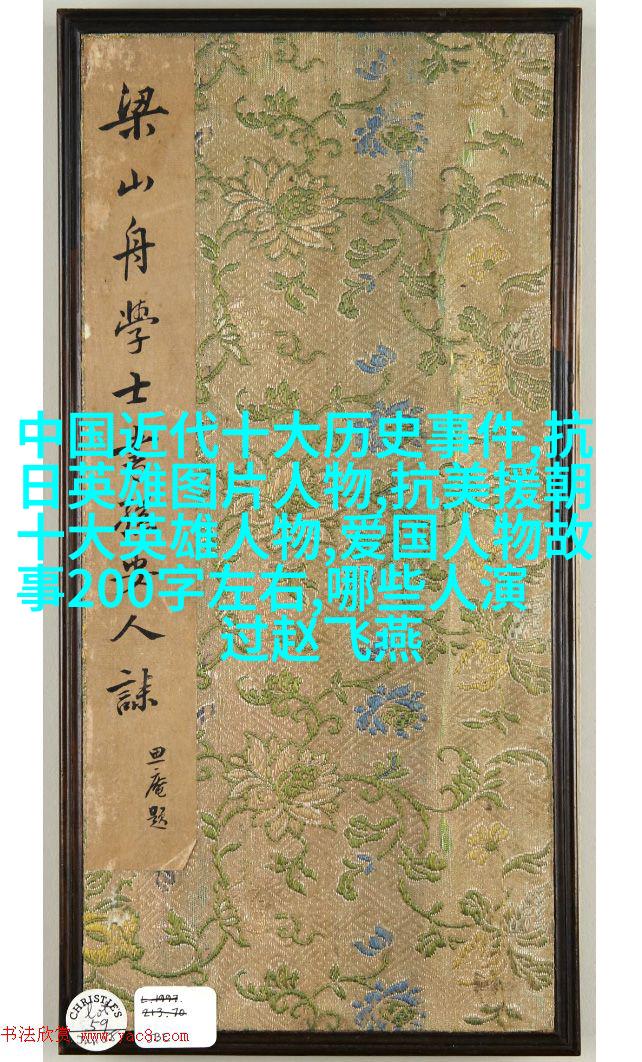 梁山舟學士書
人誌
思庵題
中国近代十大历史事件,抗
日英雄图片人物,抗美援朝
十大英雄人物,爱国人物故
事200字左右,哪些人演
过赵飞燕
CHRISTIE'S
lot
59
L.1997.
213.70
书法欣赏 www.yac8.com